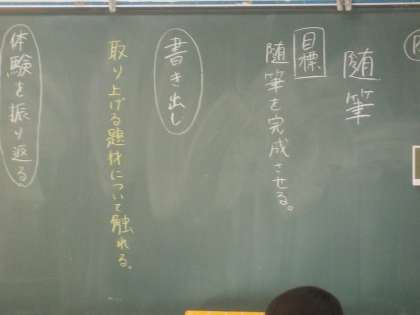 随筆
目標
随筆を完成させる。
書き出し
取り上げる題材について触れる。
体験を振り返る